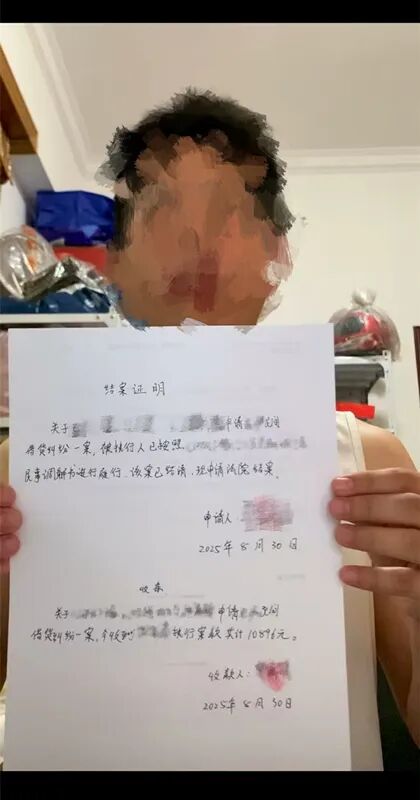 结案证明
关于 申请 民间
借贷纠纷一案，被执行人已按照
民事调解书进行履行，该案已结清，现申请法院结案。
申请人：
2025年8月30日
收条
关于 申请 民间
借贷纠纷一案，今收到 执行案款共计10896元。
收款人：
2025年8月30日